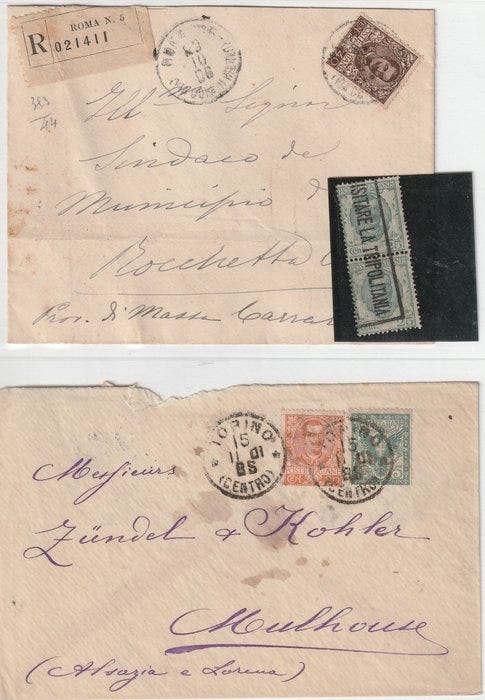 ROMA N. 5
R 021411
ROMA
10
06
385
44
Ill.mo Signor
Sindaco de
Municipio d
Rocchetta
Prov. di Massa Carrar
ISITARE LA TRIPOLITANIA
TORINO
15
11 01
8S
(CENTRO)
POSTE ITALIANE
TORINO
15
(CENTRO)
5
Messieurs
Zündel & Kohler
Mulhouse
(Alsazia e Lorena)